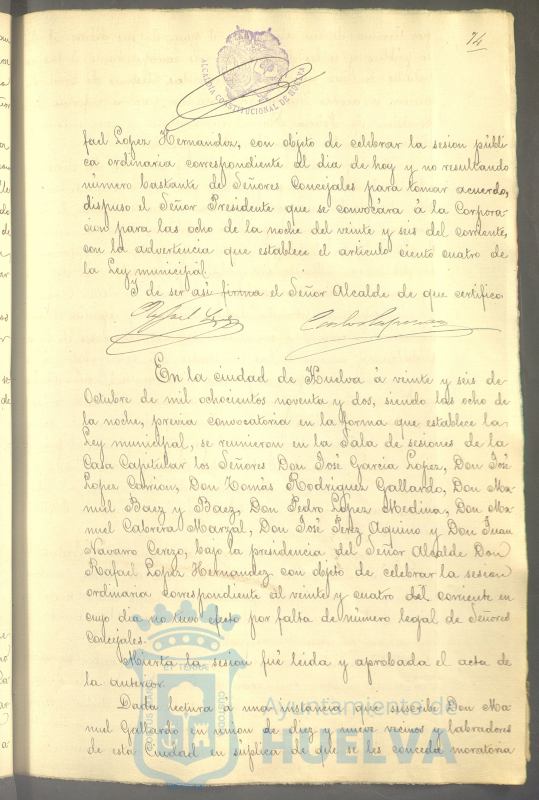 74
ALCALDIA CONSTITUCIONAL DE HUELVA
fael Lopez Hernandez, con objeto de celebrar la sesion públi-
ca ordinaria correspondiente al dia de hoy y no resultando
número bastante de Señores Concejales para tomar acuerdo,
dispuso el Señor Presidente que se convocára á la Corpora-
cion para las ocho de la noche del veinte y seis del corriente,
con la advertencia que establece el articulo ciento cuatro de
la Ley municipal.
Y de ser asi firma el Señor Alcalde de que certifico.
En la ciudad de Huelva á veinte y seis de
Octubre de mil ochocientos noventa y dos, siendo las ocho de
la noche, previa convocatoria en la forma que establece la
Ley municipal, se reunieron en la Sala de sesiones de la
Casa Capitular los Señores Don José Garcia Lopez, Don José
Lopez Carrion, Don Tomás Rodriguez Gallardo, Don Ma-
nuel Baez y Baez, Don Pedro López Medina, Don Ma-
nuel Cabrera Marzal, Don José Perez Aquino y Don Juan
Navarro Cerezo, bajo la presidencia del Señor Alcalde Don
Rafael Lopez Hernandez con objeto de celebrar la sesion
ordinaria correspondiente al veinte y cuatro del corriente en
cuyo dia no tuvo efecto por falta de número legal de Señores
Concejales.
Abierta la sesion fué leida y aprobada el acta de
la anterior.
Dada lectura á una instancia que suscribe Don Ma-
nuel Gallardo en union de diez y nueve vecinos y labradores
de esta Ciudad en súplica de que se les conceda moratoria
Ayuntamiento de
HUELVA